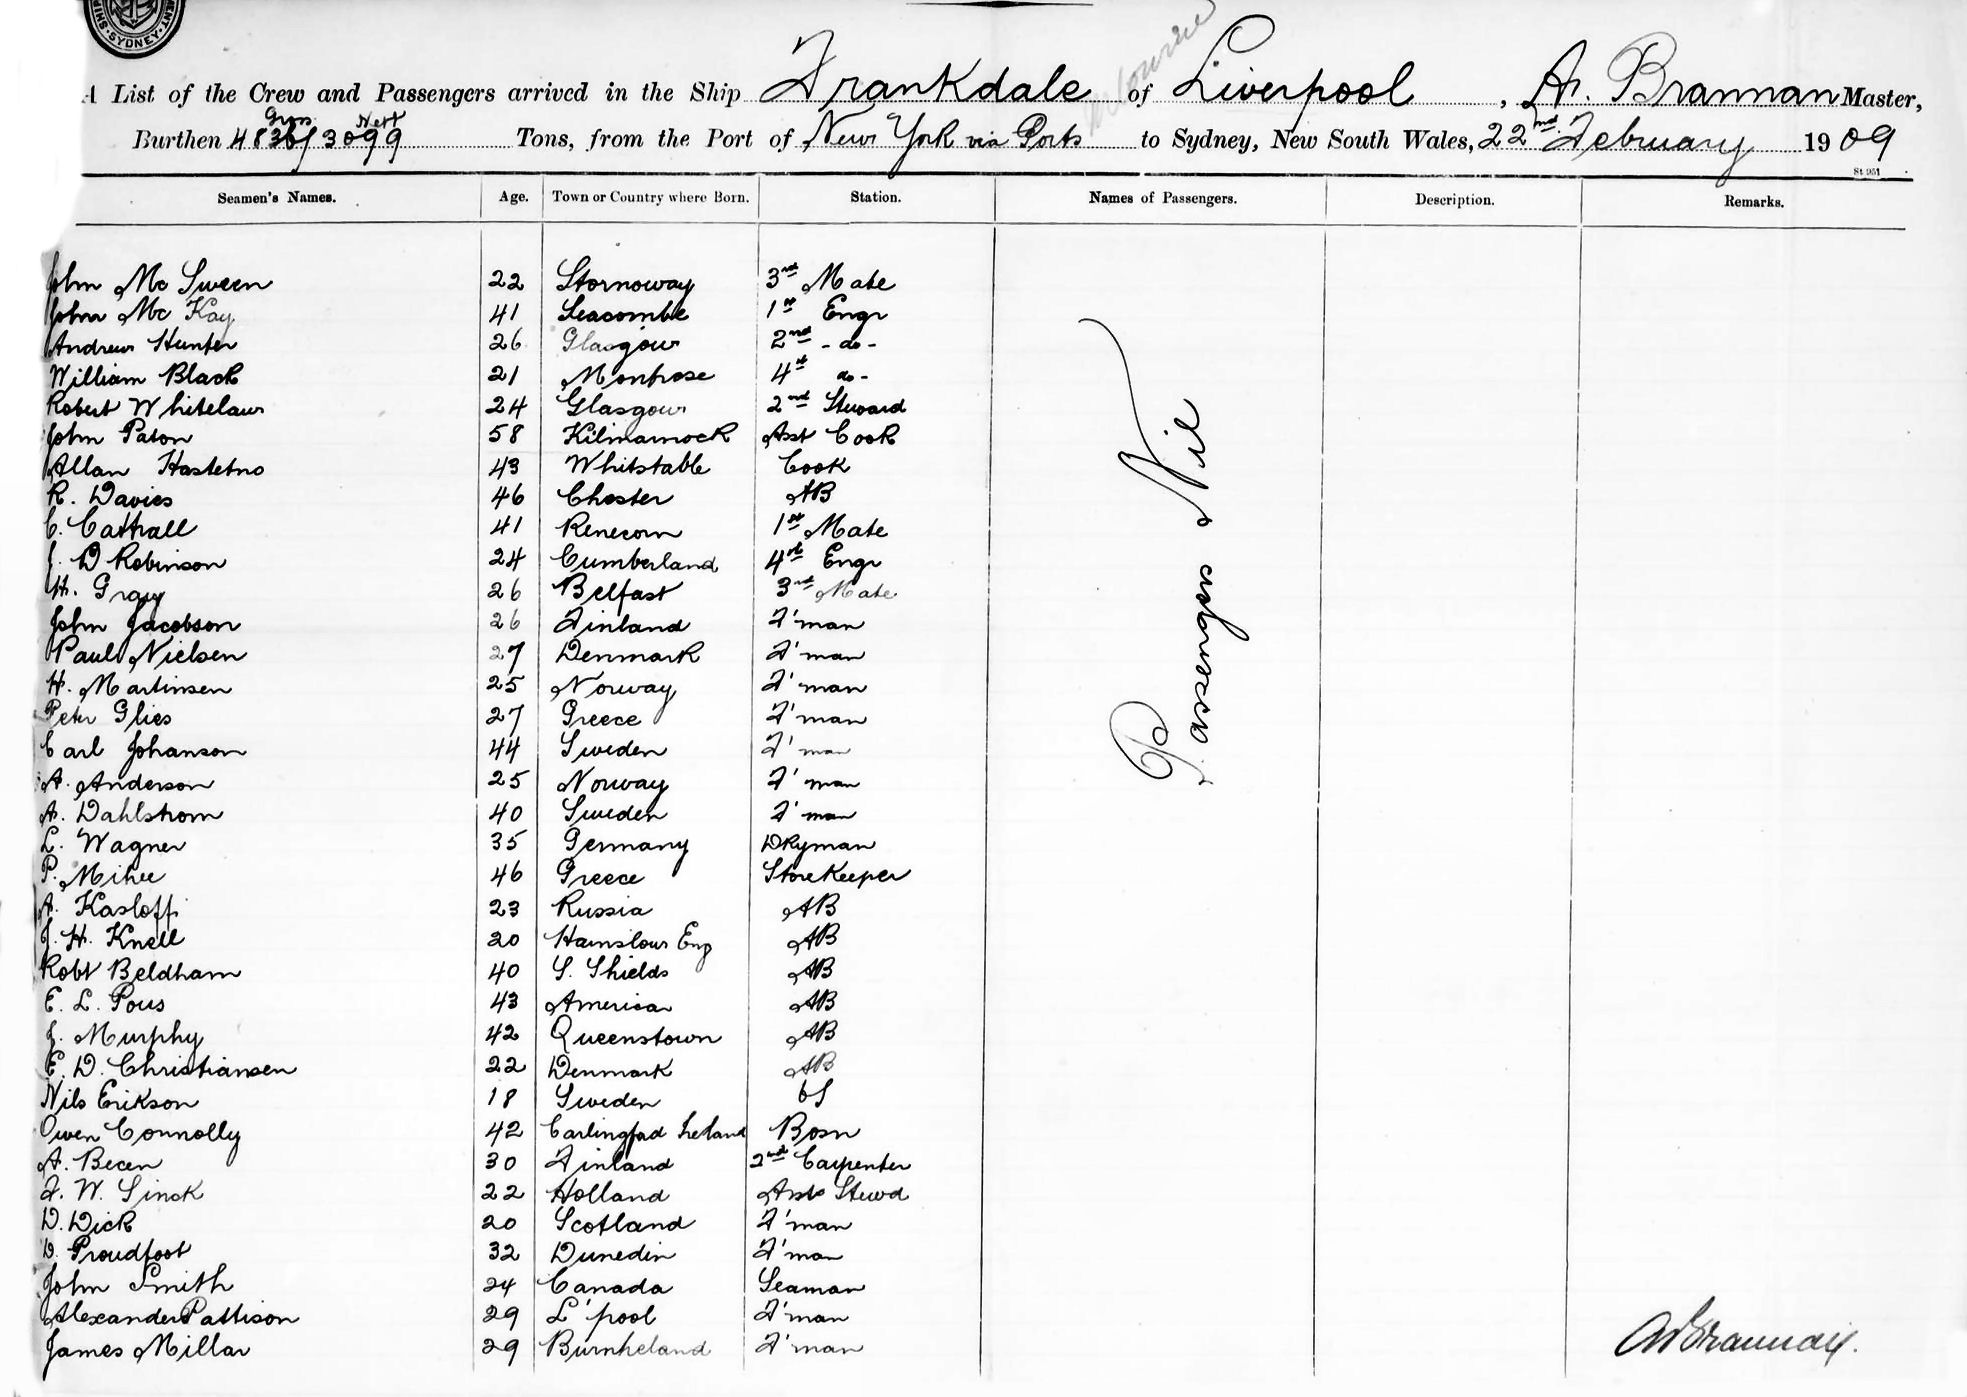 SYDNEY
A List of the Crew and Passengers arrived in the Ship Frankdale of Liverpool, A. Brannan Master,
Gross Nett
Burthen 4836/3099 Tons, from the Port of New York via Ports to Sydney, New South Wales, 22nd February 1909
St 951
Seamen's Names. Age. Town or Country where Born. Station. Names of Passengers. Description. Remarks.
John Mc Sween 22 Stornoway 3rd Mate
John Mc Kay 41 Seacombe 1st Engr
Andrew Hunter 26 Glasgow 2nd - do -
William Black 21 Montrose 4th do -
Robert Whitelaw 24 Glasgow 2nd Steward
John Paton 58 Kilmarnock Asst Cook
Allan 43 Whitstable Cook
R. Davies 46 Chester AB
C. Cathrall 41 Renecorn 1st Mate
J. D Robinson 24 Cumberland 4th Engr
H. Gray 26 Belfast 3rd Mate
John Jacobson 26 Finland F'man
Paul Nielsen 27 Denmark F'man
H. Martinsen 25 Norway F'man
Peter Glies 27 Greece F'man
Carl Johanson 44 Sweden F'man
A. Anderson 25 Norway F'man
A. Dahlstrom 40 Sweden F'man
L. Wagner 35 Germany Dkyman
P. 46 Greece StoreKeeper
A. Kasloff 23 Russia AB
J. H. Knell 20 Hamslow Eng AB
Robt Beldham 40 S. Shields AB
E. L. Pous 43 America AB
J. Murphy 42 Queenstown AB
E. D. Christiansen 22 Denmark AB
Nils Erikson 18 Sweden OS
Owen Connolly 42 Carlingfad Ireland Bosn
A. Becen 30 Finland 2nd Carpenter
F. W. Sinck 22 Holland Asst Stewd
D. Dick 20 Scotland F'man
D. Proudfoot 32 Dunedin F'man
John Smith 24 Canada Seaman
Alexander Pattison 29 L'pool F'man
James Millar 29 Burnheland F'man
Passengers Nil
A Brannan.